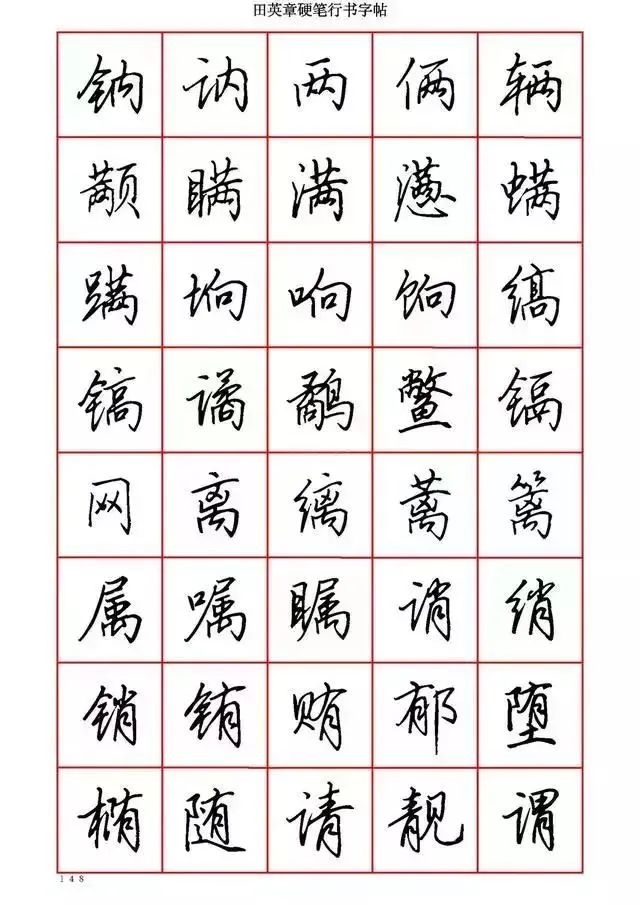 田英章硬笔行书字帖
钠 讷 两 俩 辆
颟 瞒 满 懑 螨
蹒 垧 响 饷 缟
镐 谲 鹬 鳖 镉
网 离 缡 蓠 篱
属 嘱 瞩 诮 绡
销 铕 贿 郁 堕
椭 随 请 靓 谓
148